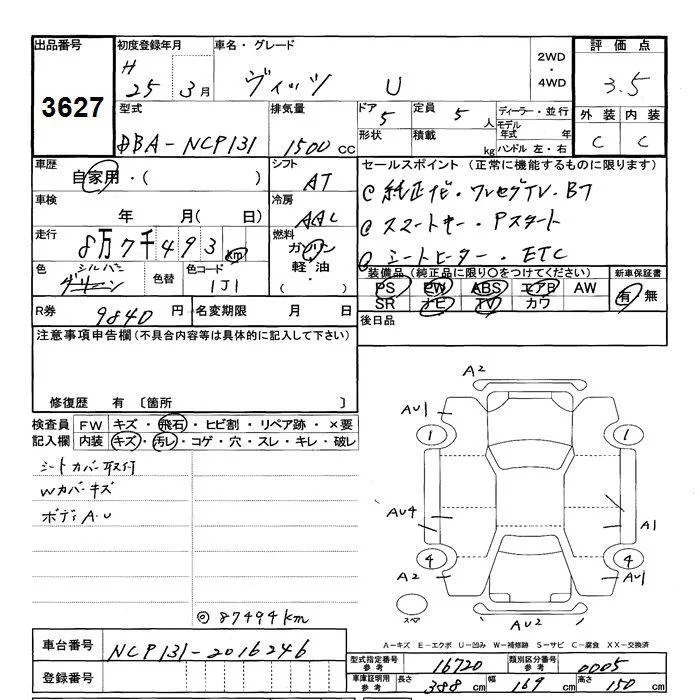 出品番号 初度登録年月 車名・グレード 2WD ・ 4WD 評価点
3627 H 25年 3月 ヴィッツ U 3.5
型式 排気量 ドア 定員 ディーラー・並行 外装 内装
DBA-NCP131 1500cc 5 5人 モデル年式 年 C C
形状 積載 kg ハンドル 左・右
車歴 シフト セールスポイント (正常に機能するものに限ります)
自家用・( ) AT 純正ナビ・ワンセグTV・BT
車検 冷房
年 月( 日) AAC スマートキー・Pスタート
走行 燃料
8万7千493km ガソリン シートヒーター・ETC
色 色替 色コード 軽油・
シルバー グリーン 1J1 ( )
装備品(純正品に限り○をつけてください) 新車保証書
PS PW ABS エアB AW 有・無
SR ナビ TV カワ
R券 9840円 名変期限 月 日 後日品
注意事項申告欄(不具合内容等は具体的に記入して下さい)
修復歴 有 〔箇所 〕
検査員 FW キズ・飛石・ヒビ割・リペア跡・×要
記入欄 内装 キズ・汚レ・コゲ・穴・スレ・キレ・破レ
シートカバー取付
Wカバーキズ
ボディA.U
◎87494km
A2
AU1
1 1
AU4 A1
4 4
A2 AU1
スペア AU2
A-キズ E-エクボ U-凹み W-補修跡 S-サビ C-腐食 XX-交換済
車台番号 NCP131-2016246
型式指定番号 参考 16720 類別区分番号 参考 0005
登録番号
車庫証明用 参考 長さ 388cm 幅 169cm 高さ 150cm